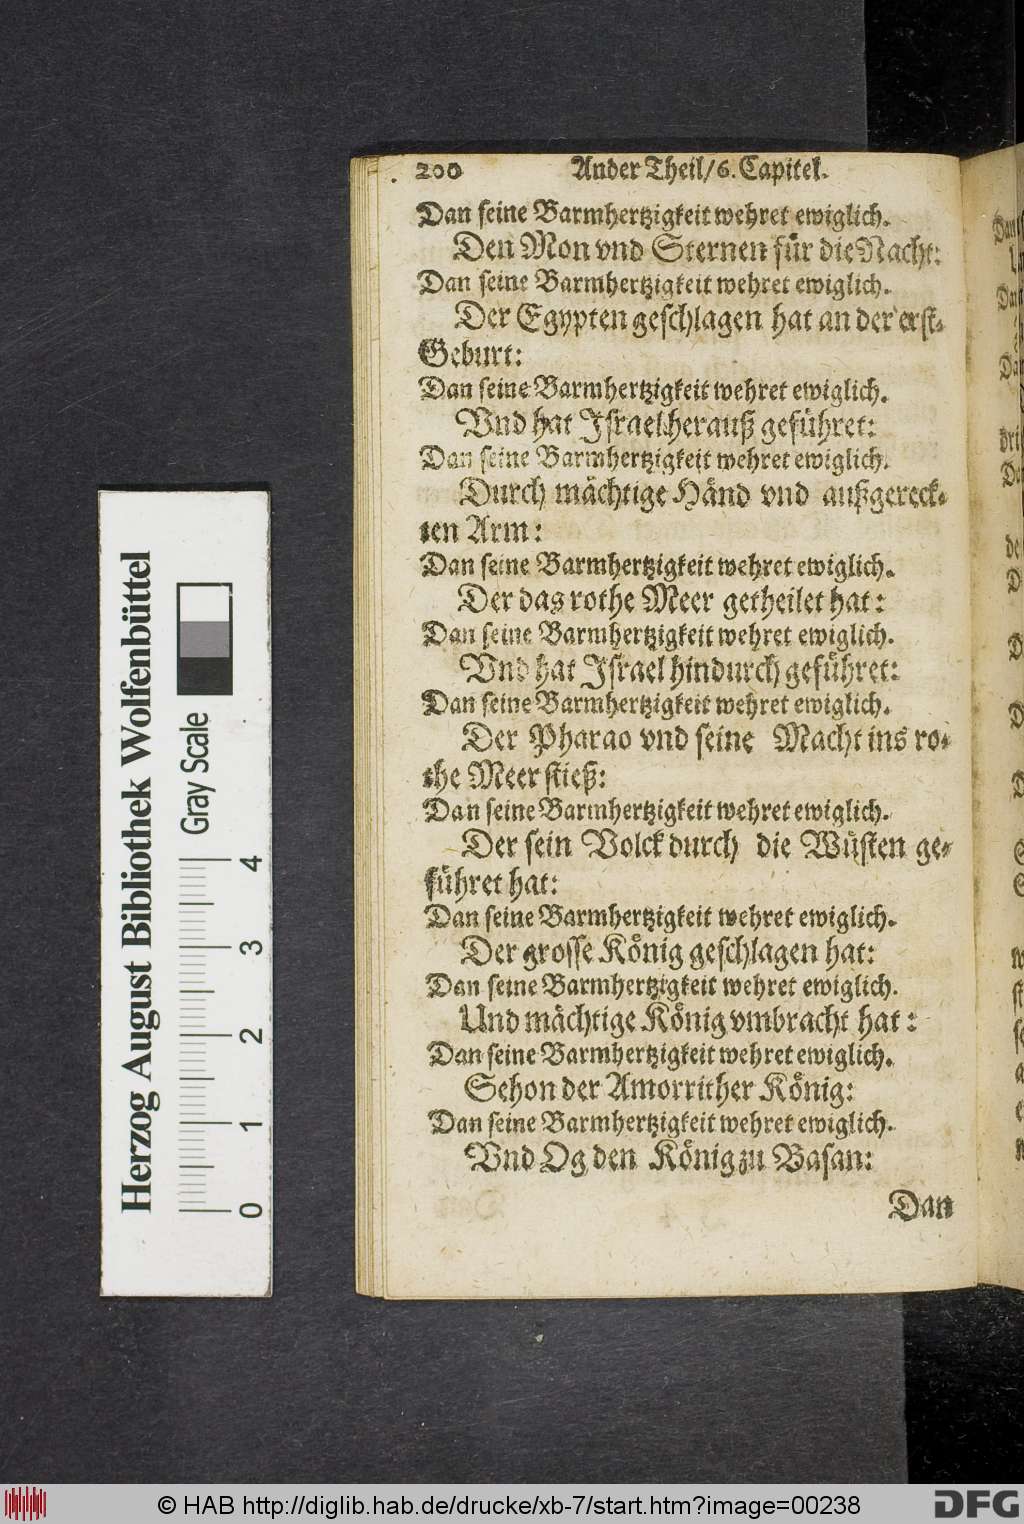 200 Ander Theil/6. Capitel.
Dan seine Barmhertzigkeit wehret ewiglich.
Den Mon vnd Sternen für die Nacht:
Dan seine Barmhertzigkeit wehret ewiglich.
Der Egypten geschlagen hat an der erst-
Geburt:
Dan seine Barmhertzigkeit wehret ewiglich.
Vnd hat Israel herauß geführet:
Dan seine Barmhertzigkeit wehret ewiglich.
Durch mächtige Händ vnd außgereck-
ten Arm:
Dan seine Barmhertzigkeit wehret ewiglich.
Der das rothe Meer getheilet hat:
Dan seine Barmhertzigkeit wehret ewiglich.
Vnd hat Israel hindurch geführet:
Dan seine Barmhertzigkeit wehret ewiglich.
Der Pharao vnd seine Macht ins ro-
the Meer stieß:
Dan seine Barmhertzigkeit wehret ewiglich.
Der sein Volck durch die Wüsten ge-
führet hat:
Dan seine Barmhertzigkeit wehret ewiglich.
Der grosse König geschlagen hat:
Dan seine Barmhertzigkeit wehret ewiglich.
Und mächtige König vmbracht hat:
Dan seine Barmhertzigkeit wehret ewiglich.
Sehon der Amorrither König:
Dan seine Barmhertzigkeit wehret ewiglich.
Vnd Og den König zu Basan:
Dan
Herzog August Bibliothek Wolfenbüttel
Gray Scale
0 1 2 3 4
© HAB http://diglib.hab.de/drucke/xb-7/start.htm?image=00238
DFG